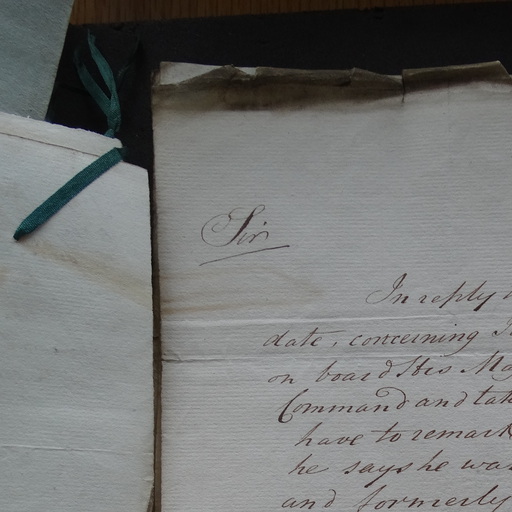 Sir
In reply
date, concerning
on board His
Command and
have to remark
he says he was
and formerly